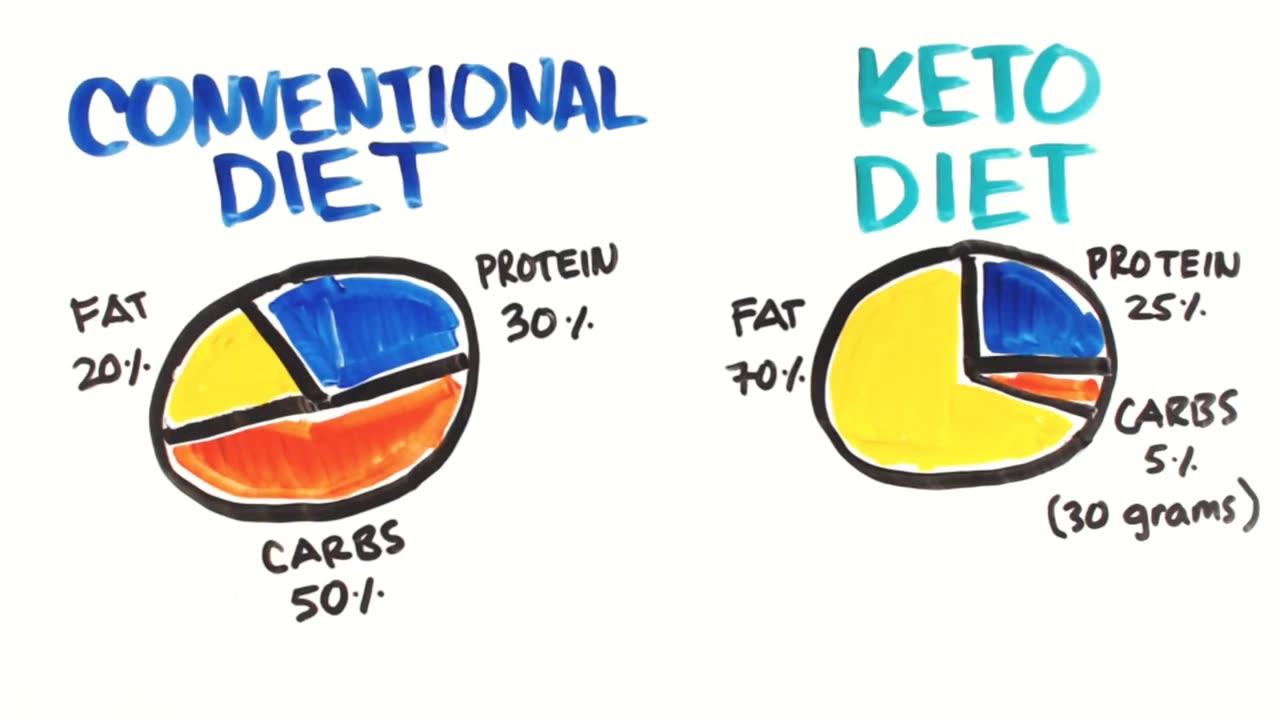 CONVENTIONAL
DIET
FAT
20%
PROTEIN
30%
CARBS
50%
KETO
DIET
FAT
70%
PROTEIN
25%
CARBS
5%
(30 grams)